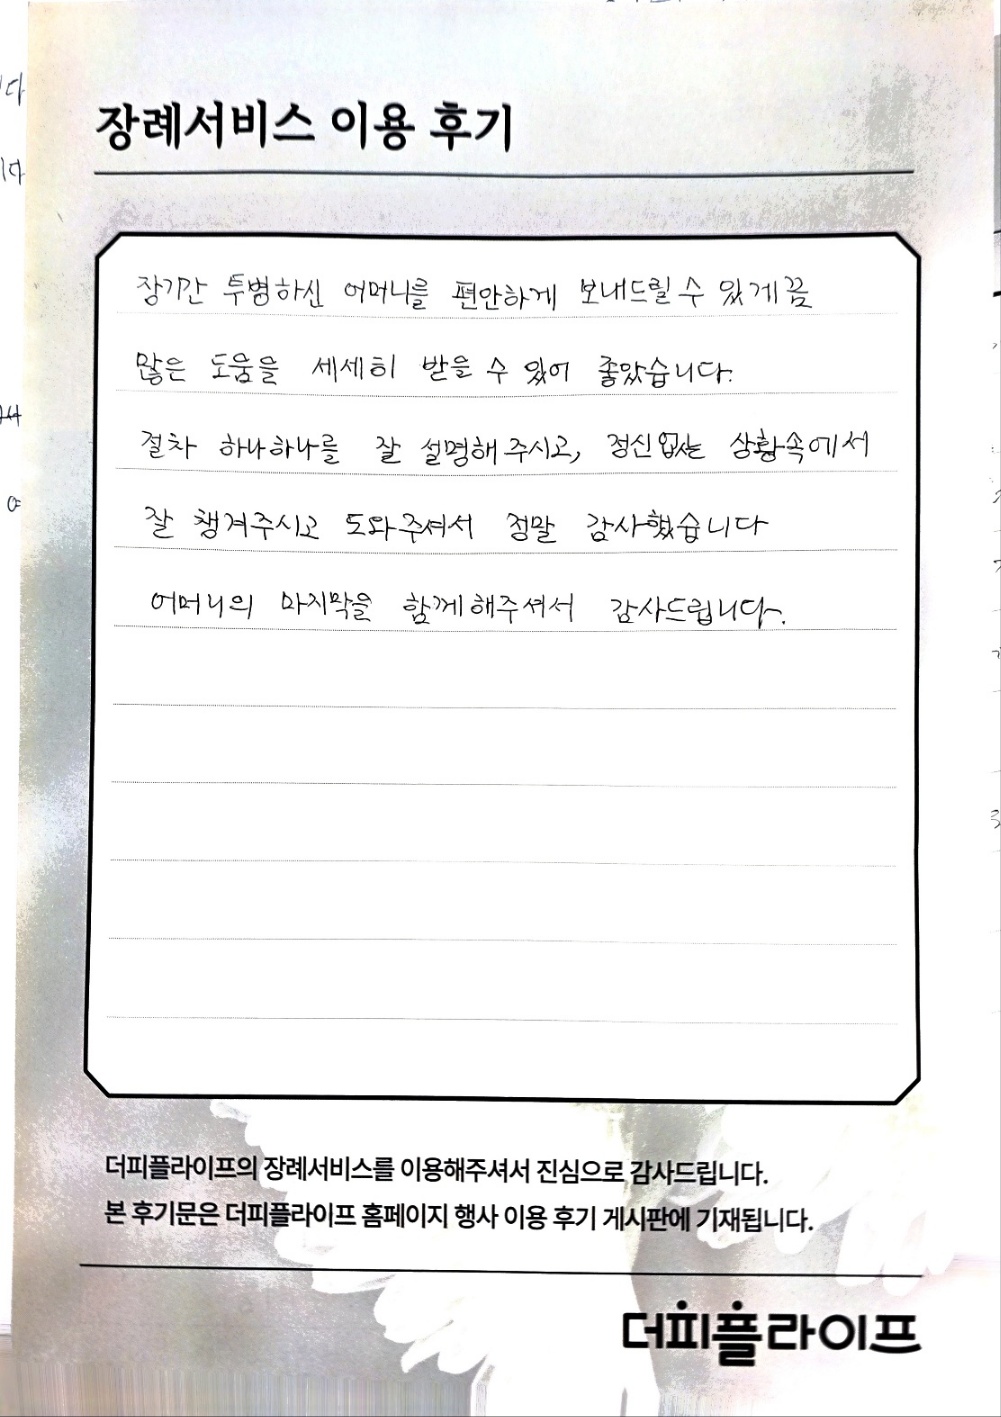 장례서비스 이용 후기
장기간 투병하신 어머니를 편안하게 보내드릴 수 있게끔
많은 도움을 세세히 받을 수 있어 좋았습니다.
절차 하나하나를 잘 설명해 주시고, 정신없는 상황속에서
잘 챙겨주시고 도와주셔서 정말 감사했습니다
어머니의 마지막을 함께해주셔서 감사드립니다.
더피플라이프의 장례서비스를 이용해주셔서 진심으로 감사드립니다.
본 후기문은 더피플라이프 홈페이지 행사 이용 후기 게시판에 기재됩니다.
더피플라이프